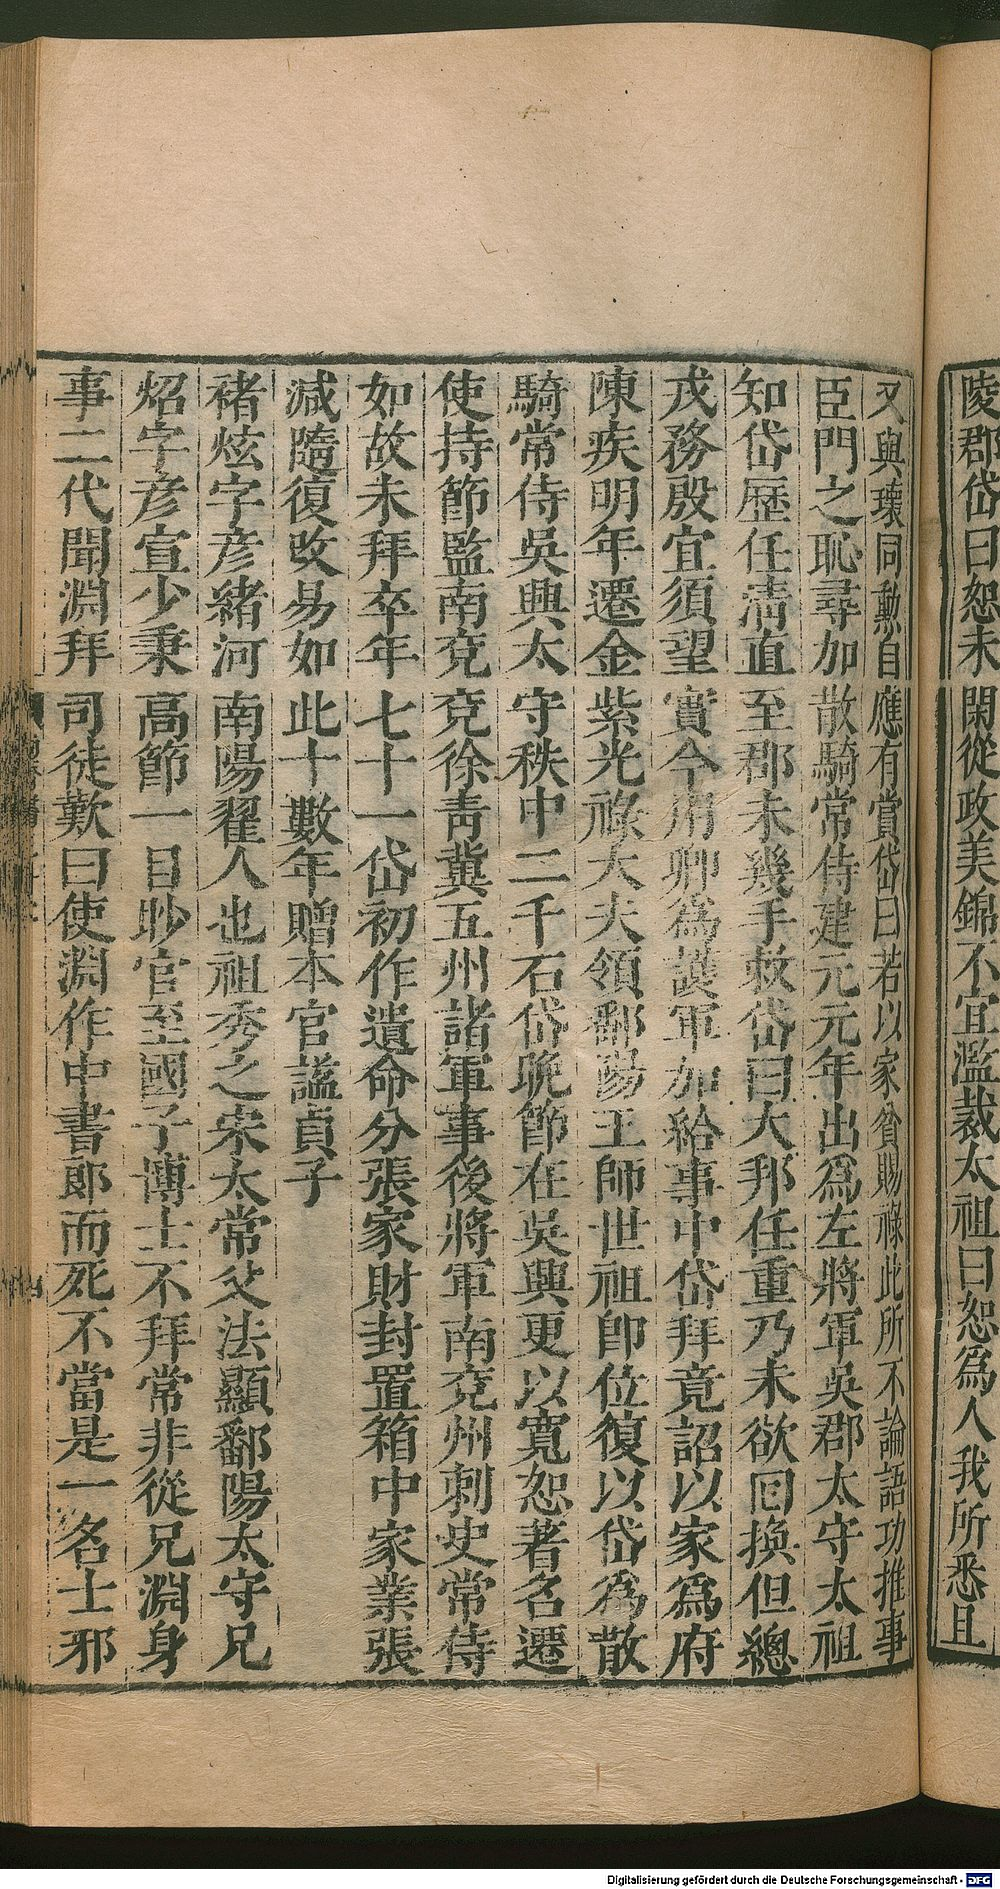 陵郡岱曰恕未閑從政美錦不宜濫裁太祖曰恕爲人我所悉且
又與瓌同勲自應有賞岱曰若以家貧賜祿此所不論語功推事
臣門之恥尋加散騎常侍建元元年出爲左將軍吳郡太守太祖
知岱歷任清直至郡未幾手敕岱曰大邦任重乃未欲回換但總
戎務殷宜須望實今用卿爲護軍加給事中岱拜竟詔以家爲府
陳疾明年遷金紫光祿大夫領鄱陽王師世祖卽位復以岱爲散
騎常侍吳興太守秩中二千石岱晚節在吳興更以寬恕著名遷
使持節監南兗兗徐靑冀五州諸軍事後將軍南兗州刺史常侍
如故未拜卒年七十一岱初作遺命分張家財封置箱中家業張
減隨復改易如此十數年贈本官諡貞子
褚炫字彥緒河南陽翟人也祖秀之宋太常父法顯鄱陽太守兄
炤字彥宣少秉高節一目眇官至國子博士不拜常非從兄淵身
事二代聞淵拜司徒歎曰使淵作中書郎而死不當是一名士邪
Digitalisierung gefördert durch die Deutsche Forschungsgemeinschaft - DFG